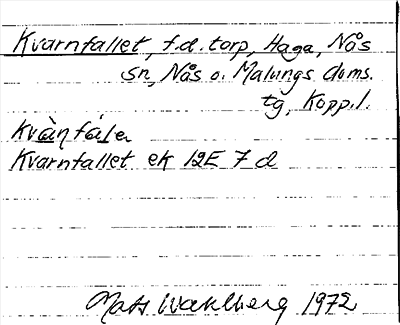 Kvarnfallet, f.d. torp, Haga, Nås
sn, Nås o. Malungs doms.
tg, Kopp.l.
kvà̀ŋfála
Kvarnfallet ek 12E 7 d
Mats Wahlberg 1972